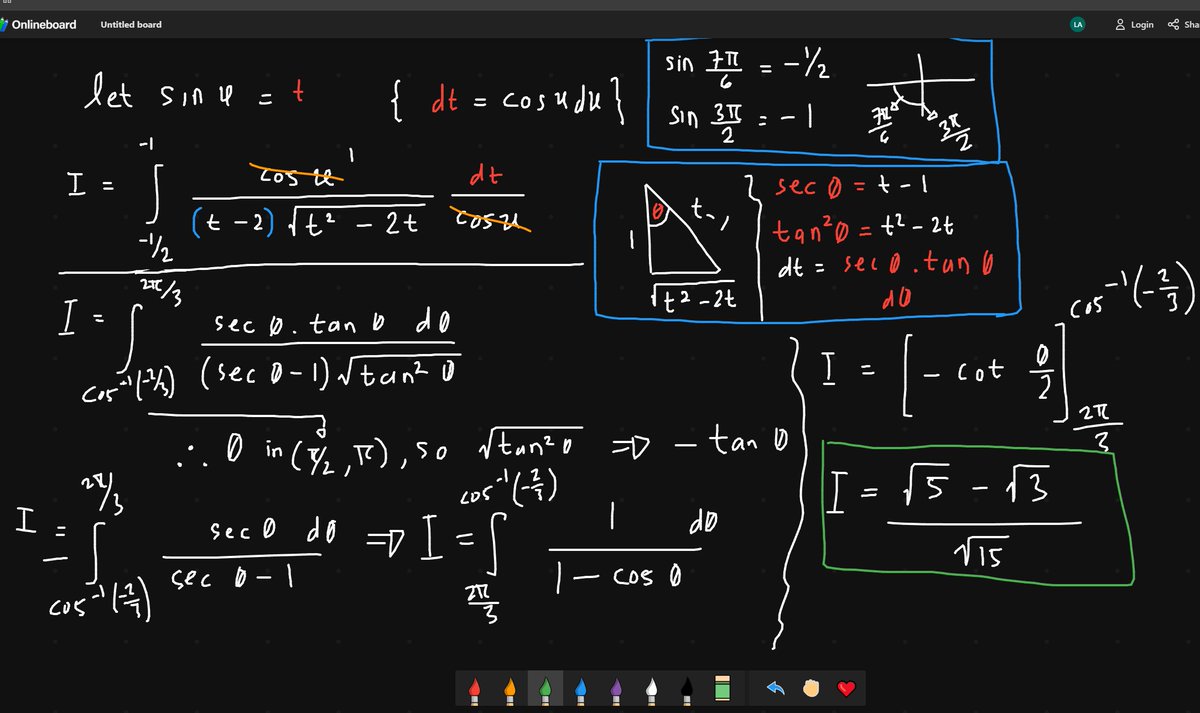 Onlineboard Untitled board LA Login Sha
let sin u = t { dt = cos u du }
sin 7π/6 = -1/2
sin 3π/2 = -1
7π/6 3π/2
I = ∫_{-1/2}^{-1} cos u / ((t - 2) √(t² - 2t)) dt / cos u 1
θ t-1
1
√(t² - 2t)
sec θ = t - 1
tan²θ = t² - 2t
dt = sec θ . tan θ
dθ
I = ∫_{cos⁻¹(-2/3)}^{2π/3} sec θ . tan θ dθ / ((sec θ - 1) √(tan² θ))
∴ θ in (π/2, π), so √(tan² θ) ⇒ - tan θ
I = ∫_{cos⁻¹(-2/3)}^{2π/3} sec θ dθ / (sec θ - 1) ⇒ I = ∫_{2π/3}^{cos⁻¹(-2/3)} 1 / (1 - cos θ) dθ
I = [ - cot θ/2 ]_{2π/3}^{cos⁻¹(-2/3)}
I = (√5 - √3) / √15